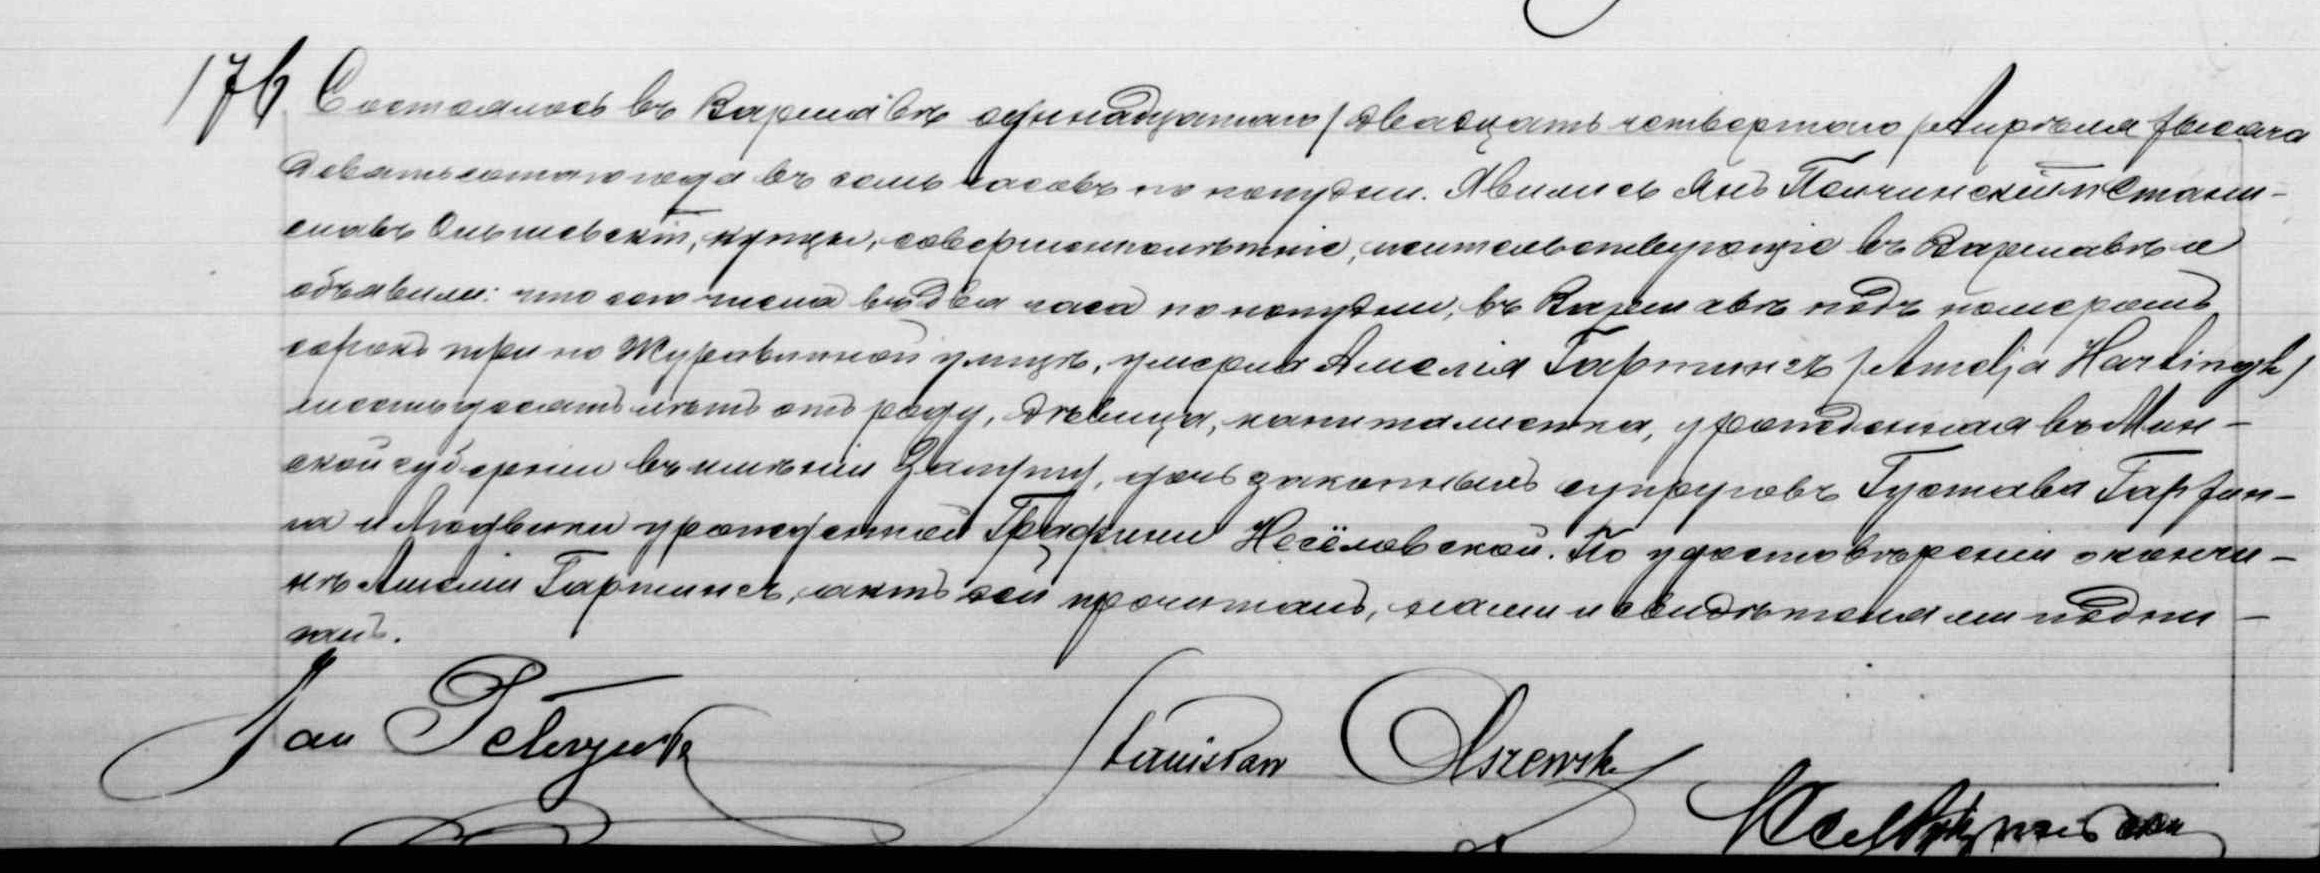 176 Состоялось въ Варшавѣ одиннадцатаго /двадцать четвертаго/ Апрѣля тысяча
девятьсотаго года въ семь часовъ по полудни. Явились Янъ Пельчинскій и Стани-
славъ Ольшевскій, купцы, совершеннолѣтніе, жительствующіе въ Варшавѣ и
объявили: что сего числа въ два часа по полудни, въ Варшавѣ подъ номеромъ
сорокъ три по Журавлиной улицѣ, умерла Амелія Гартингъ /Amelja Hartingk/
шестьдесятъ лѣтъ отъ роду, дѣвица, капиталистка, урожденная въ Мин-
ской губерніи въ имѣніи, дочь законныхъ супруговъ Густава Гартин-
га и Людвики урожденной Графини Несёловской. По удостовѣреніи о кончи-
нѣ Амеліи Гартингъ, актъ сей прочитанъ, нами и свидѣтелями подпи-
санъ.
Jan
Stanisław Olszewski